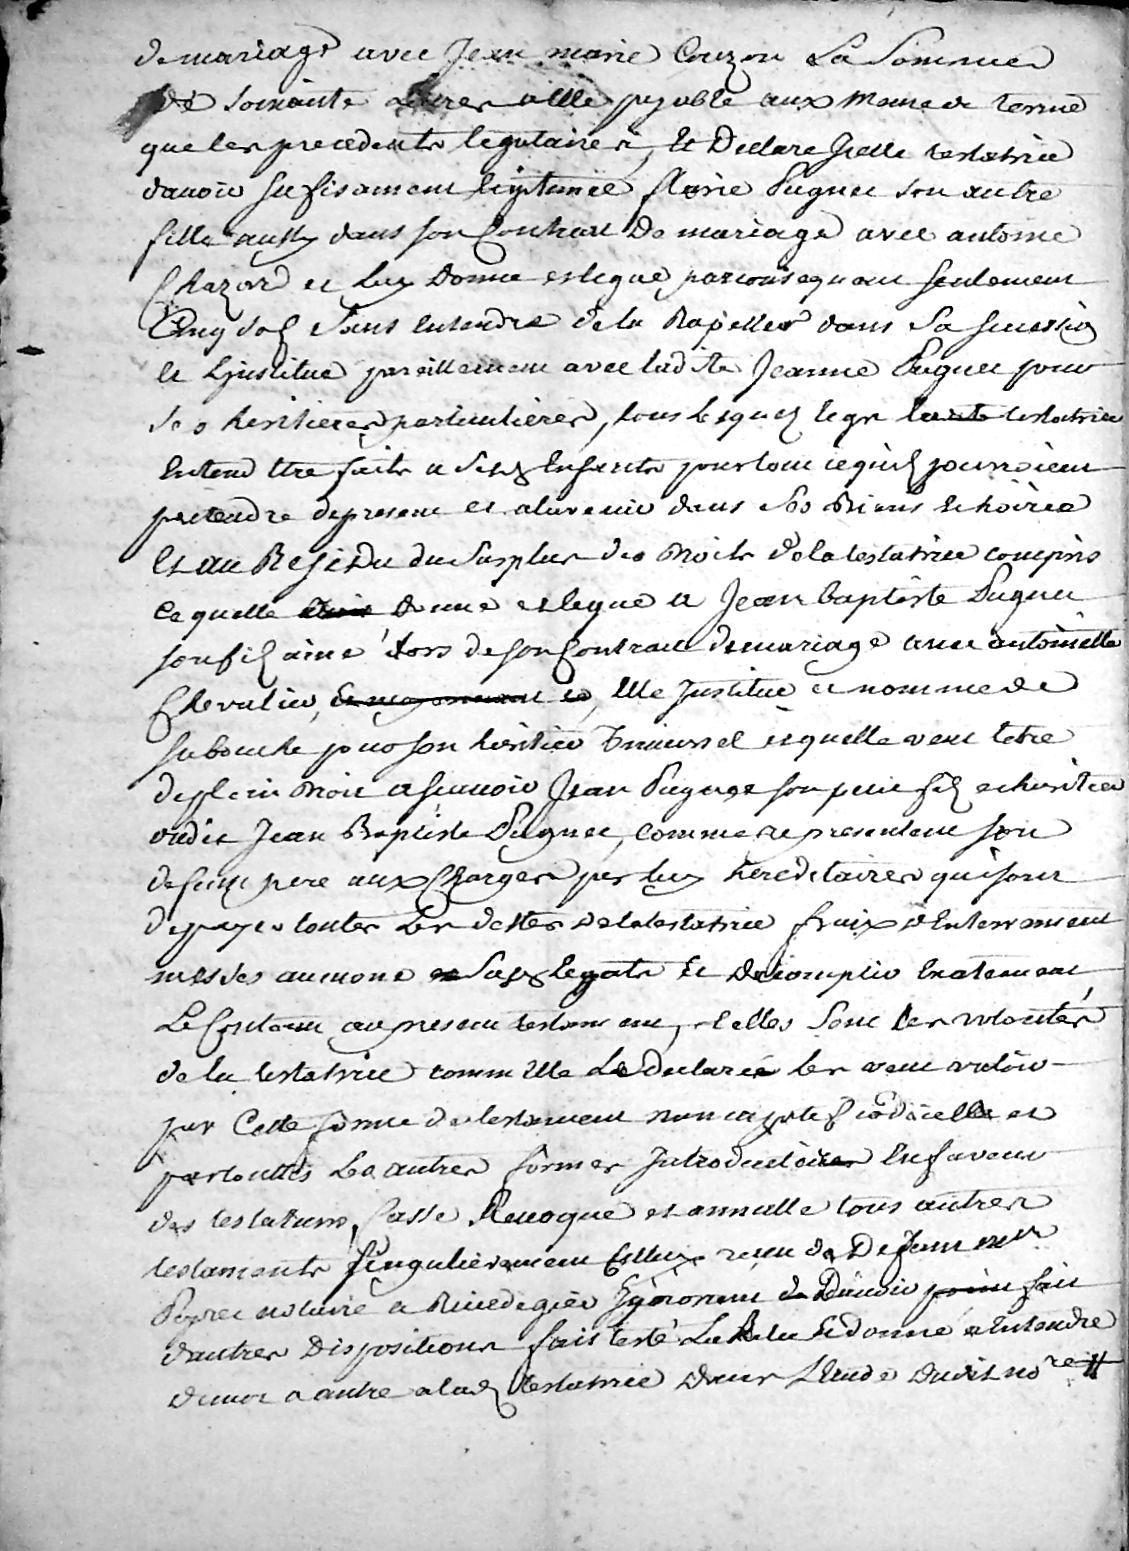 de mariage avec Jean marie Couzon La Somme
de soixante Livres a Elle payable aux meme de terme
que les precedents legataires, Et Declare Jcelle testatrice
davoir sufisament legitimée Marie Pugnet son autre
fille aussy dans son Contrat De mariage avec antoine
Chazot et luy Donne et legue par consequant seulement
Cinq sols Sans entendre de la Rapeller dans Sa succession
et Linstitue pareillement avec ladite Jeanne Pugnet pour
ses heritieres particulieres, tous lesquels legs testatrice
Entend Etre faits a sesd Enfants pour tout ce quils pourroient
pretendre de present et a lavenir dans Ses Biens et hoirie
Et au Residu du Surplus des Droits de la testatrice compris
Ce quelle donne et legue a Jean baptiste Pugnet
son fils ainé Lors de son Contrait de mariage avec antoinette
Chevalier, Elle Jnstitue et nomme de
sa bouche pour son heritier Universel et quelle veut letre
de plein Droit a scavoir Jean Pugnet son petit fils et heritier
dudit Jean Baptiste Pugnet, comme representant son
defunt pere aux Charges par luy hereditaires qui sont
de payer toutes Les dettes de la testatrice fraix dEnterrement
messes aumone Susd legats Et de remplir Exatement
Le Contenu au present testament, telles Sont Les volontés
de la testatrice comm Elle Le declare Les veut valoir
par Cette forme de testament nuncupatif codicille et
par touttes Les autres formes Jntroduitoires En faveur
des testateurs, Casse Revoque et annulle tous autres
testaments singulierement Celluy recu de Defunt me
notaire a Rivedegier Jgnorant davoir fait
dautres Dispositions fait testé Lu Relu Et donné a Entendre
de mot a autre a lad testatrice Dans LEtude Dudit no.re //